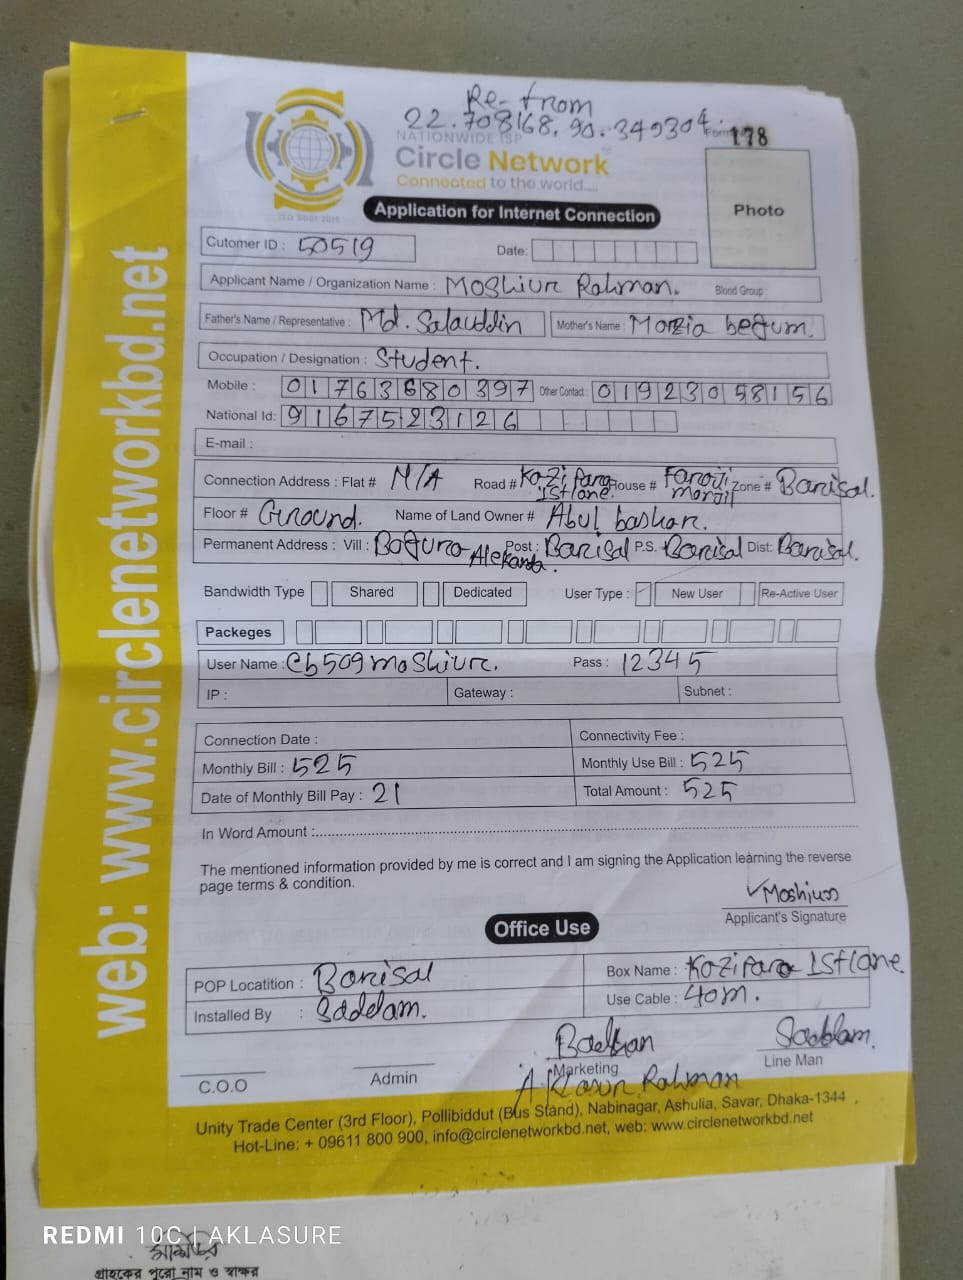 Re-from
22.708168, 90.349304
Form 178
NATIONWIDE ISP
Circle Network
Connected to the world....
ISO 9001:2015
Application for Internet Connection
Photo
Cutomer ID : 50519 Date:
Applicant Name / Organization Name : Moshiur Rahman. Blood Group :
Father's Name / Representative : Md. Salauddin Mother's Name : Morzia begum.
Occupation / Designation : Student.
Mobile : 01763680397 Other Contact : 01923058156
National Id: 9167523126
E-mail :
Connection Address : Flat # N/A Road # Kozi para 1st lane. House # Faroji monjil Zone # Barisal.
Floor # Ground. Name of Land Owner # Abul bashar.
Permanent Address : Vill : Bogura Alekanda. Post : Barisal P.S. Barisal Dist: Barisal.
Bandwidth Type Shared Dedicated User Type : New User Re-Active User
Packeges
User Name : Cb509moshiur. Pass : 12345
IP : Gateway : Subnet :
Connection Date : Connectivity Fee :
Monthly Bill : 525 Monthly Use Bill : 525
Date of Monthly Bill Pay : 21 Total Amount : 525
In Word Amount :
The mentioned information provided by me is correct and I am signing the Application learning the reverse
page terms & condition.
Moshiur
Applicant's Signature
Office Use
POP Locatition : Barisal Box Name : Kozi Para 1st lane.
Installed By : Saddam. Use Cable : 40m.
Saddam.
C.O.O Admin Marketing Line Man
Aklasur Rahman
Unity Trade Center (3rd Floor), Pollibiddut (Bus Stand), Nabinagar, Ashulia, Savar, Dhaka-1344
Hot-Line: + 09611 800 900, info@circlenetworkbd.net, web: www.circlenetworkbd.net
web: www.circlenetworkbd.net
REDMI 10C | AKLASURE
গ্রাহকের পুরো নাম ও স্বাক্ষর